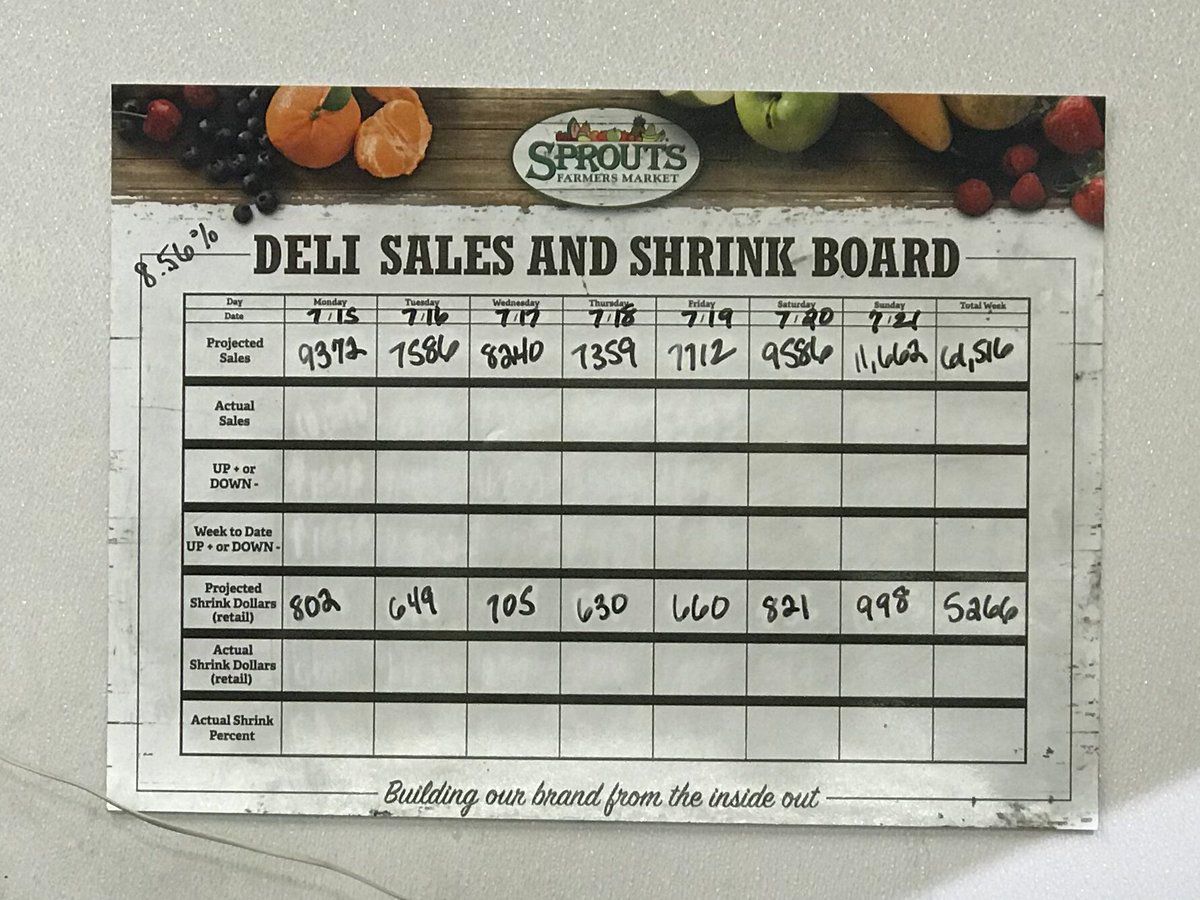 SPROUTS
FARMERS MARKET
8.56%
DELI SALES AND SHRINK BOARD
Day Monday Tuesday Wednesday Thursday Friday Saturday Sunday Total Week
Date 7/15 7/16 7/17 7/18 7/19 7/20 7/21
Projected Sales 9372 7586 8240 7359 7712 9586 11,662 61,516
Actual Sales
UP + or DOWN -
Week to Date UP + or DOWN -
Projected Shrink Dollars (retail) 802 649 705 630 660 821 998 5266
Actual Shrink Dollars (retail)
Actual Shrink Percent
Building our brand from the inside out